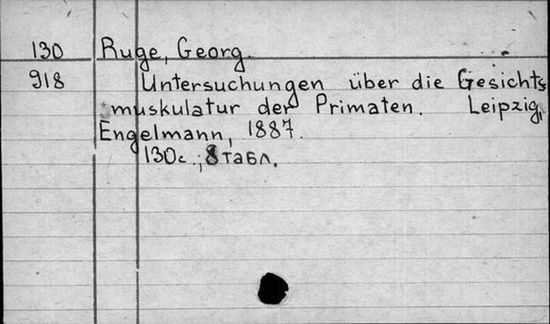 130 Ruge, Georg.
918 Untersuchungen über die Gesichts
muskulatur der Primaten. Leipzig,
Engelmann, 1887.
130с.; 8 табл.